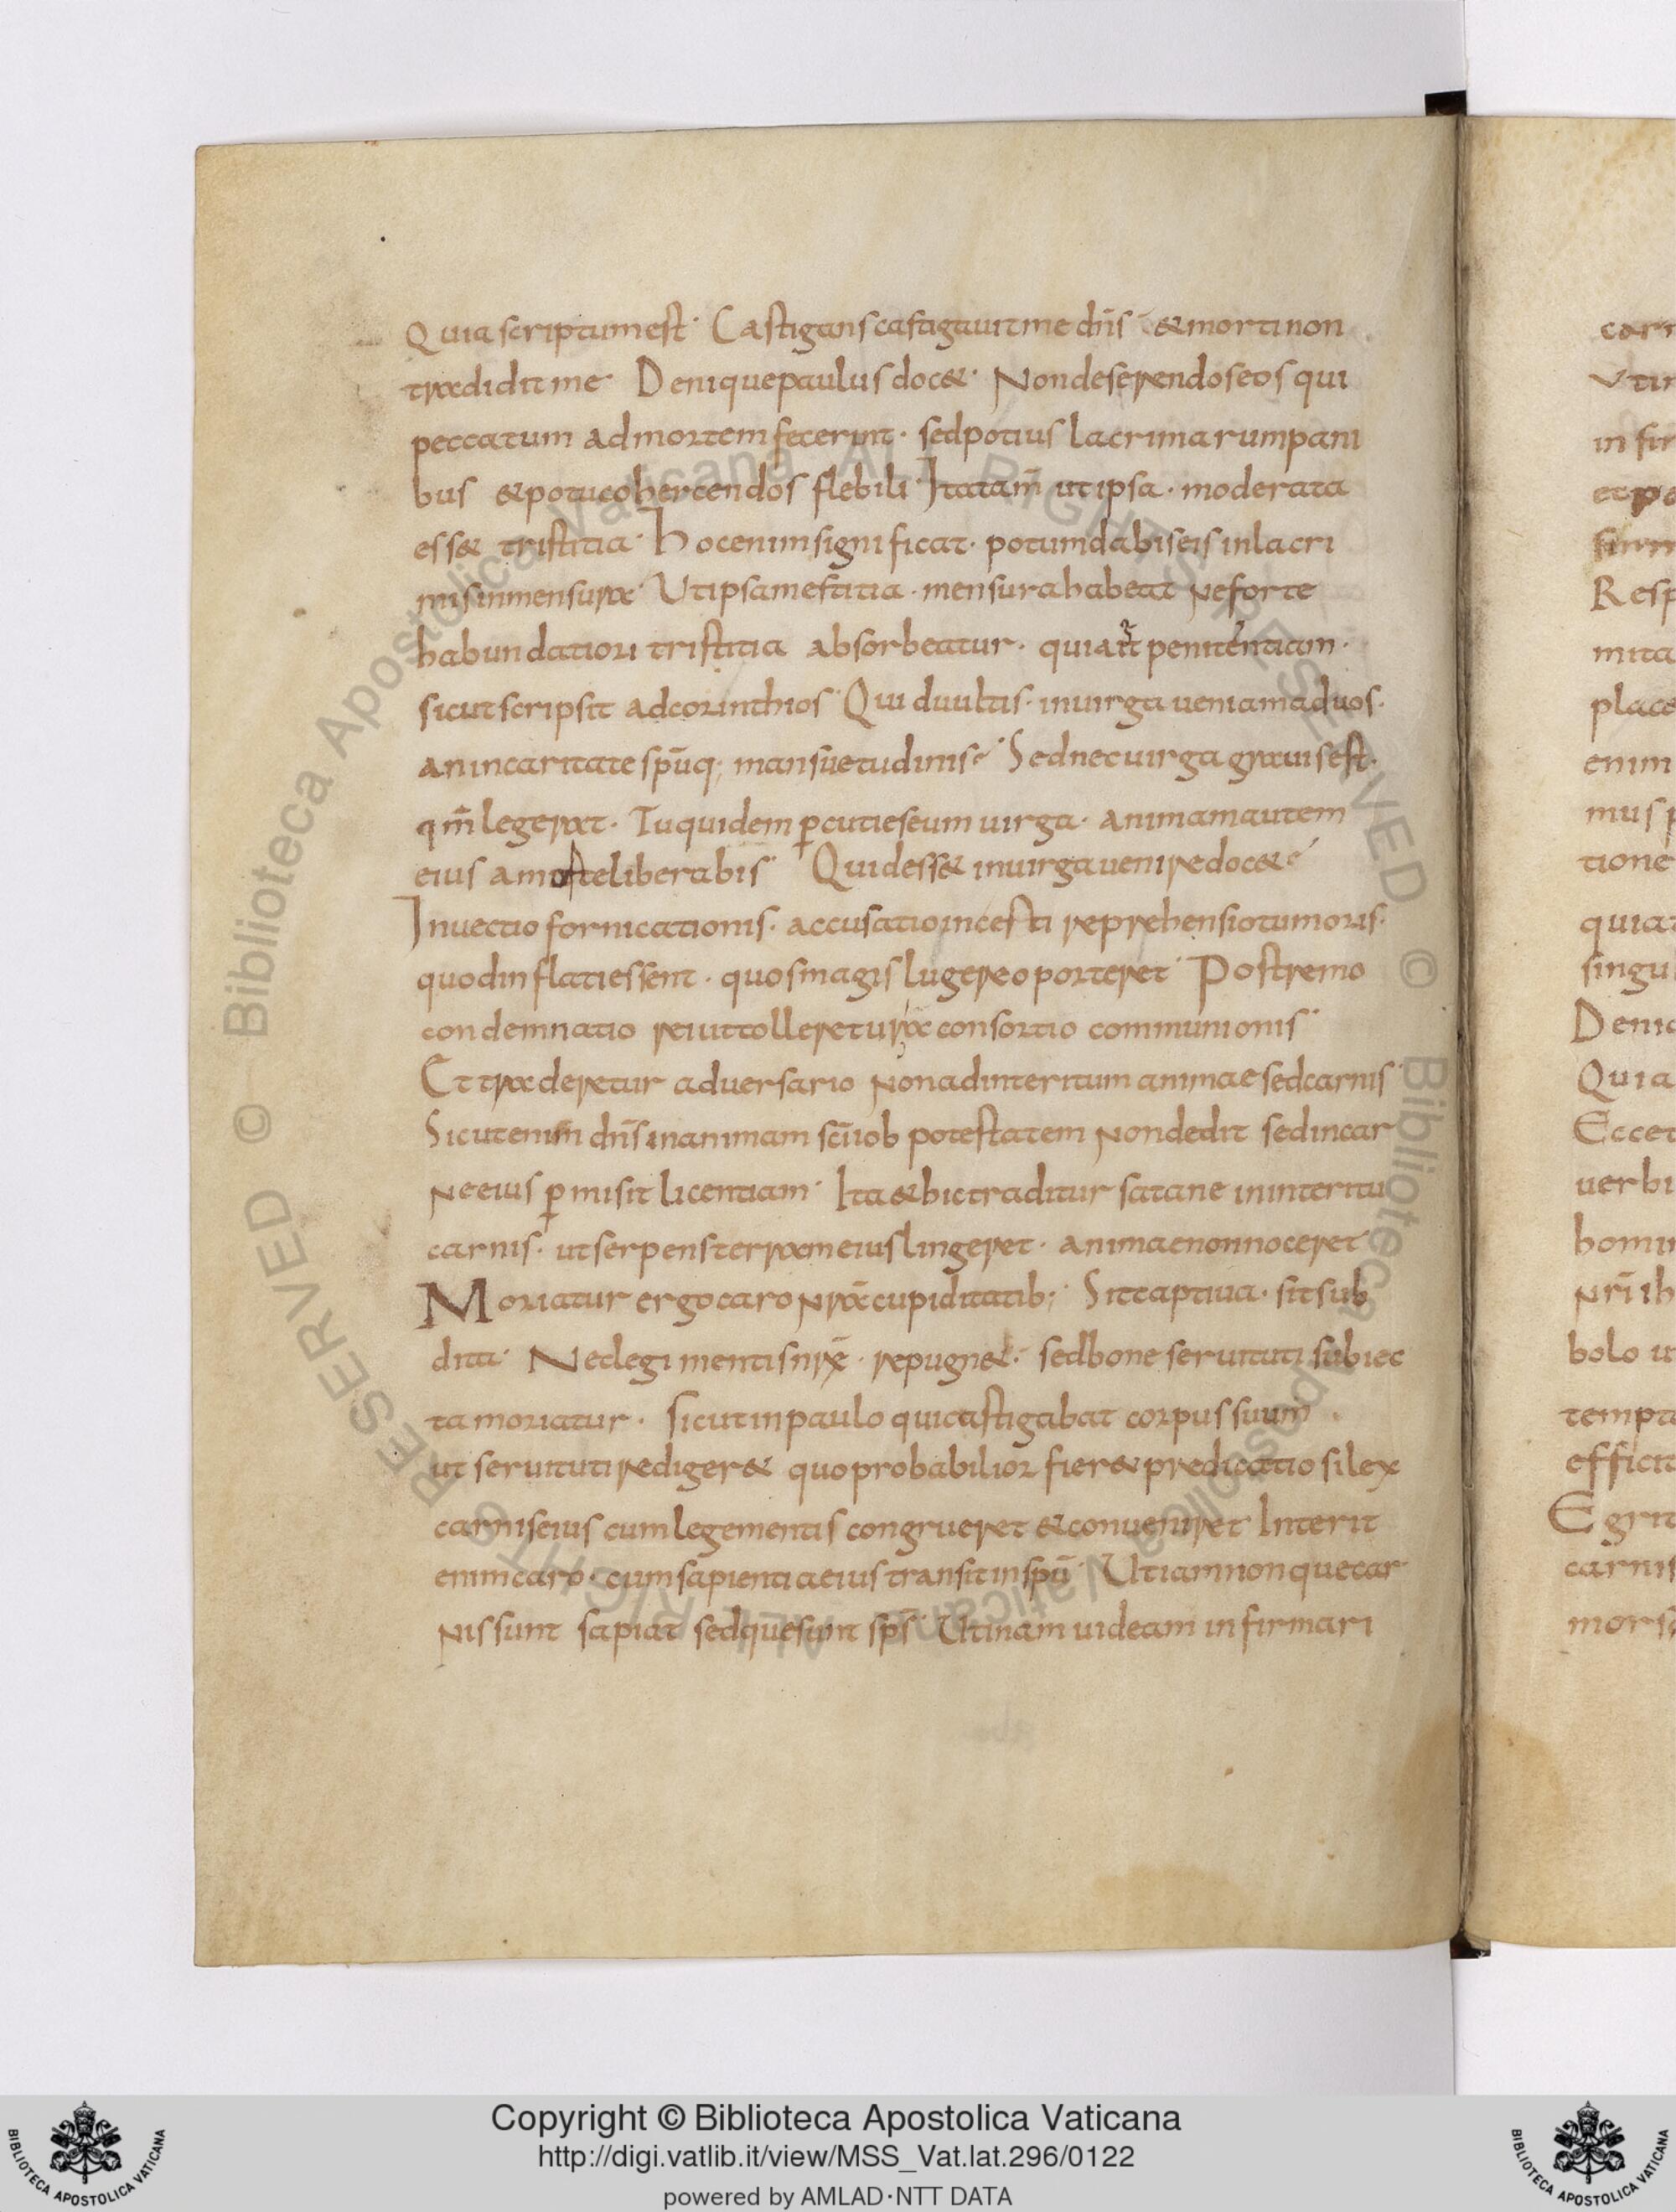 Quia scriptum est· Castigans castigauit me dn̄s & morti non
tradidit me· Denique paulus doc&· Non deserendos eos qui
peccatum ad mortem fecerunt· sed potius lacrimarum pani
bus & potu cohercendos flebili· Ita tam̄ ut ipsa· moderata
ess& tristitia· Hoc enim significat· potum dabis eis in lacri
mis in mensura· Ut ipsa mestitia· mensura habeat ne forte
habundatiori tristitia absorbeatur· penitentiam·
sicut scripsit ad corinthios· Quid uultis· in uirga ueniam ad uos·
an in caritate spūq; mansuetudinis· Sed nec uirga grauis est·
qm̄ legerat· Tu quidem ꝑcuties eum uirga· animam autem
eius a morte liberabis· Quid ess& in uirga uenire doc&
Inuectio fornicationis· accusatio incesti reprehensio tumoris·
quod inflati essent· quos magis lugere oporteret· Postremo
condemnatio rei ut tolleretur a consortio communionis·
Et traderetur aduersario non ad interitum animae sed carnis·
Sicut enim dn̄s in animam sc̄i iob potestatem non dedit sed in car
ne eius ꝑmisit licentiam· Ita & hic traditur satane in interitu
carnis· ut serpens terram eius lingeret· animae non noceret
Moriatur ergo caro nrā cupiditatib; Sit captiua· sit sub
dita· Ne legi mentis nrē· repugn&· sed bone seruituti subiec
ta moriatur· sicut in paulo qui castigabat corpus suum
ut seruituti rediger& quo probabilior fier& predicatio si lex
carnis eius cum lege mentis congrueret & conueniret Interit
enim caro· cum sapientia eius transit in spū· Ut iam non que car
nis sunt sapiat sed que sunt sp̄s· Utinam uideam infirmari
Copyright © Biblioteca Apostolica Vaticana
http://digi.vatlib.it/view/MSS_Vat.lat.296/0122
powered by AMLAD·NTT DATA
BIBLIOTECA APOSTOLICA VATICANA
BIBLIOTECA APOSTOLICA VATICANA